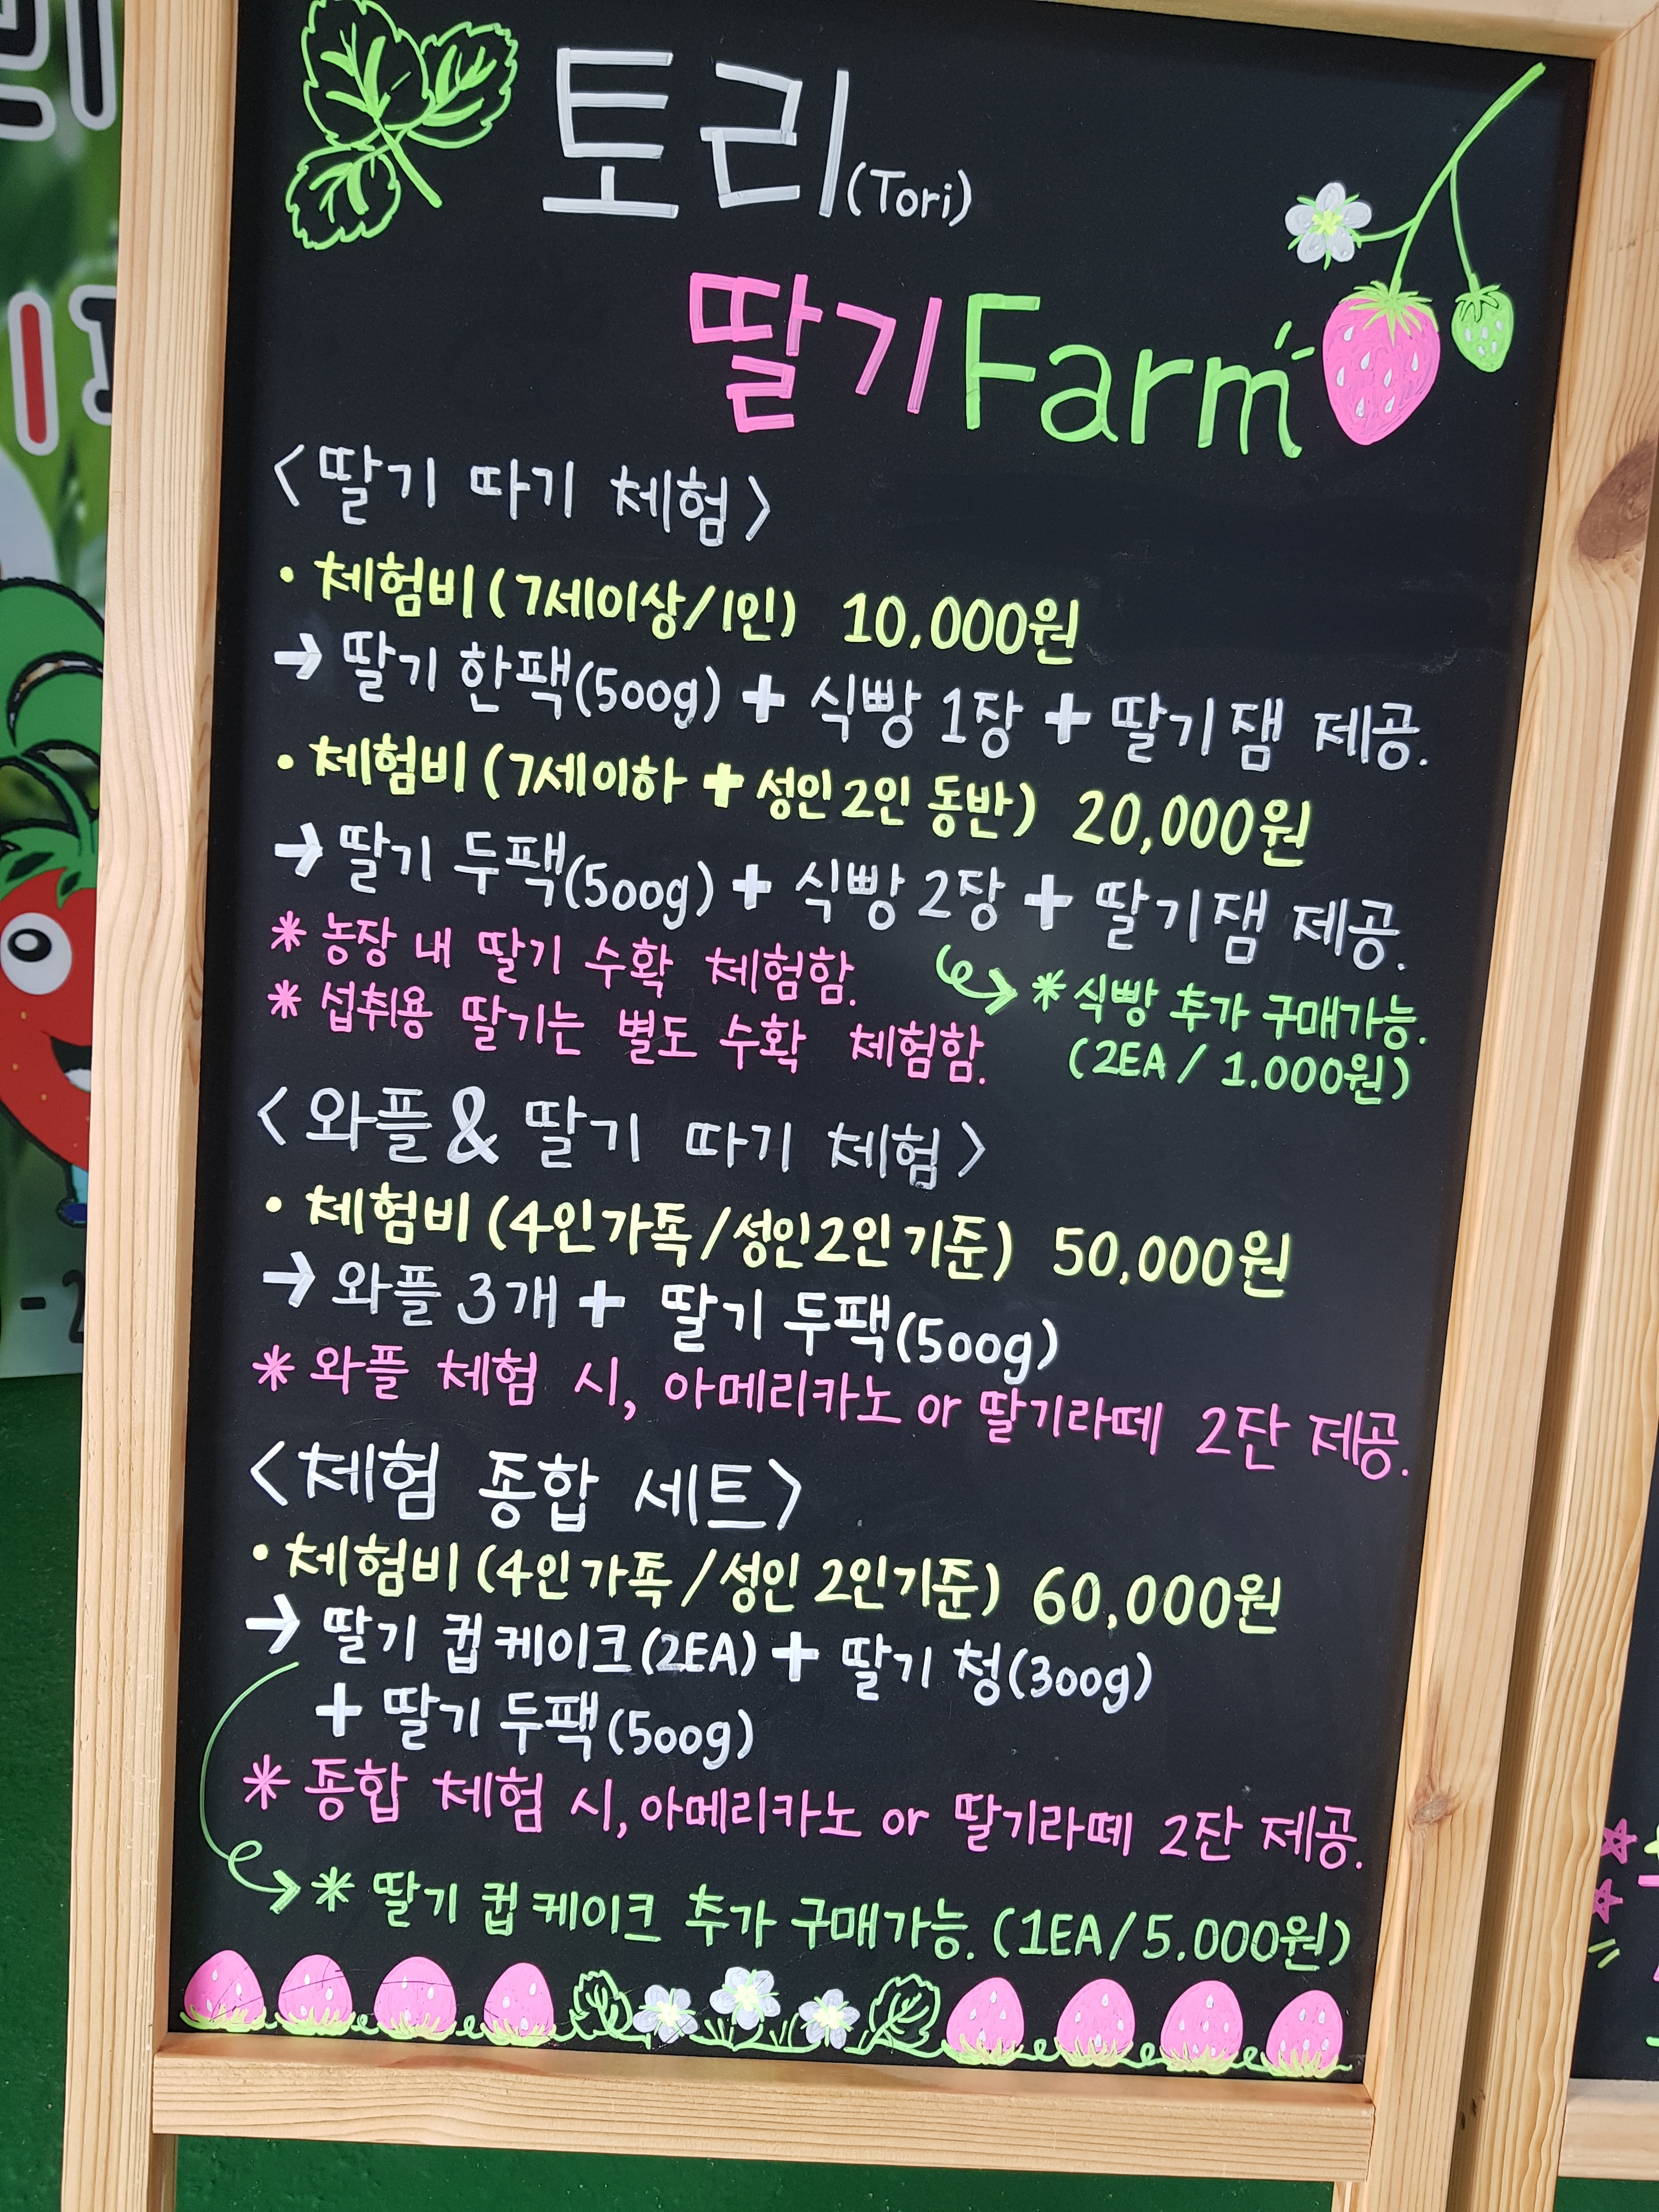 토리(Tori)
딸기Farm
<딸기 따기 체험>
• 체험비 (7세이상/1인) 10,000원
→ 딸기 한팩(500g) + 식빵 1장 + 딸기잼 제공.
• 체험비 (7세이하 + 성인2인 동반) 20,000원
→ 딸기 두팩(500g) + 식빵 2장 + 딸기잼 제공.
* 농장 내 딸기 수확 체험함.
* 섭취용 딸기는 별도 수확 체험함.
* 식빵 추가 구매가능.
(2EA / 1.000원)
<와플 & 딸기 따기 체험>
• 체험비 (4인가족/성인2인기준) 50,000원
→ 와플 3개 + 딸기 두팩(500g)
* 와플 체험 시, 아메리카노 or 딸기라떼 2잔 제공.
<체험 종합 세트>
• 체험비 (4인가족/성인 2인기준) 60,000원
→ 딸기 컵케이크(2EA) + 딸기 청(300g)
+ 딸기 두팩(500g)
* 종합 체험 시, 아메리카노 or 딸기라떼 2잔 제공.
→ * 딸기 컵케이크 추가 구매가능. (1EA/5.000원)